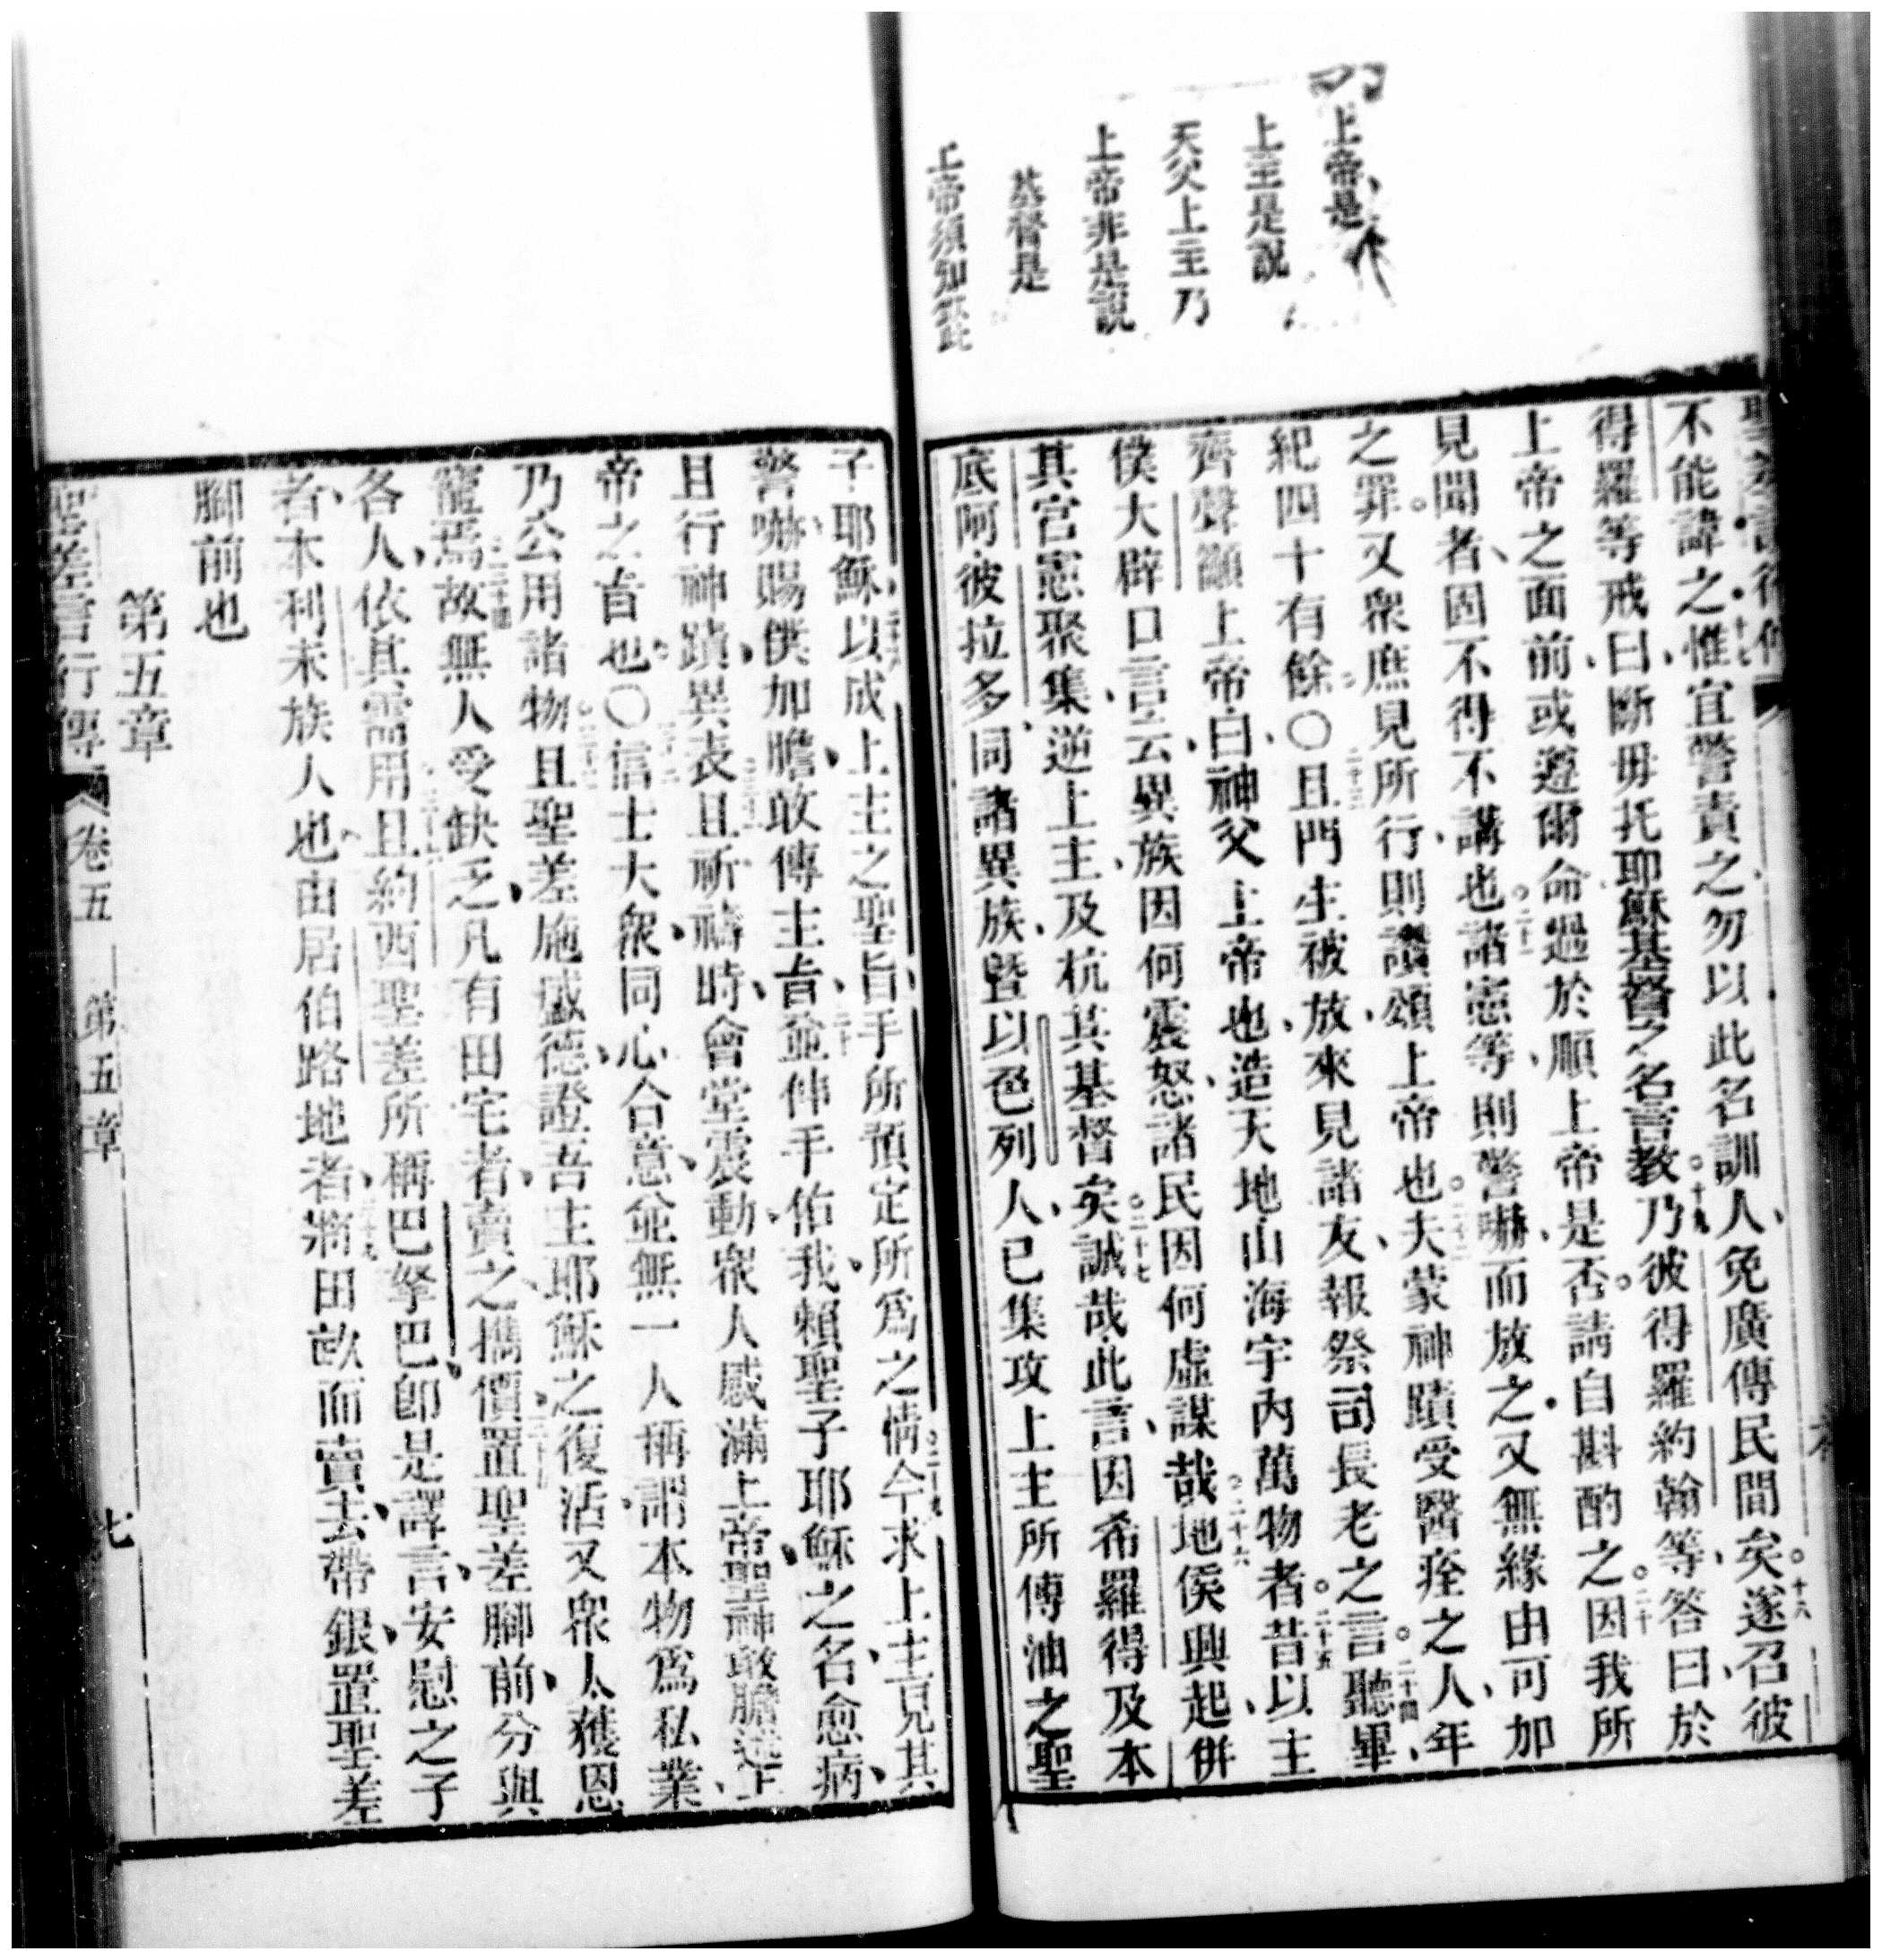 上帝是
上主是說
天父上主乃
上帝非是說
基督是
上帝須知
不能諱之惟宜警責之勿以此名訓人免廣傳民間矣十六遂召彼
得羅等戒曰斷毋托耶穌基督之名言教十九乃彼得羅約翰等答曰於
上帝之面前或遵爾命過於順上帝是否請自斟酌之二十因我所
見聞者固不得不講也二十一諸憲等則警嚇而放之又無緣由可加
之罪又眾庶見所行則讚頌上帝也二十二夫蒙神蹟受醫痊之人年
紀四十有餘〇二十三且門生被放來見諸友報祭司長老之言二十四聽畢
齊聲籲上帝曰神父上帝也造天地山海宇內萬物者二十五昔以主
僕大辟口言云異族因何震怒諸民因何虛謀哉二十六地侯興起併
其官憲聚集逆上主及杭其基督矣二十七誠哉此言因希羅得及本
底阿彼拉多同諸異族曁以色列人已集攻上主所傅油之聖
子耶穌以成上主之聖旨手所預定所為之情二十九今求上主見其
警嚇賜僕加膽敢傳主旨三十並伸手佑我賴聖子耶穌之名愈病
且行神蹟異表三十一且祈禱時會堂震動眾人感滿上帝聖神敢膽述上
帝之旨也〇三十二信士大眾同心合意並無一人稱謂本物為私業
乃公用諸物三十三且聖差施盛德證吾主耶穌之復活又眾太獲恩
寵焉三十四故無人受缺乏凡有田宅者賣之攜價三十五置聖差腳前分與
各人依其需用三十六且約西聖差所稱巴拏巴卽是譯言安慰之子
者本利未族人也由居伯路地者三十七將田畝而賣去帶銀置聖差
腳前也
第五章
聖差言行傳 卷五 第五章 七